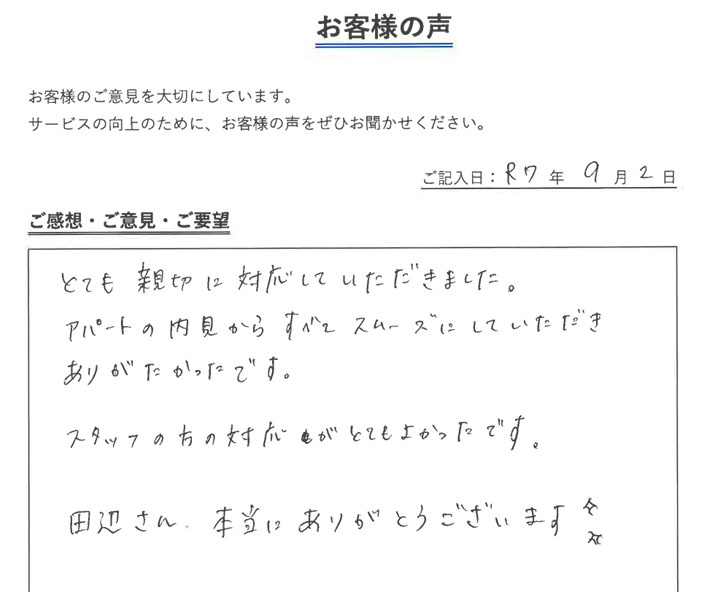 お客様の声
お客様のご意見を大切にしています。
サービスの向上のために、お客様の声をぜひお聞かせください。
ご記入日：R7年 9月2日
ご感想・ご意見・ご要望
とても親切に対応していただきました。
アパートの内見からすべてスムーズにしていただき
ありがたかったです。
スタッフの方の対応がとてもよかったです。
田辺さん、本当にありがとうございます